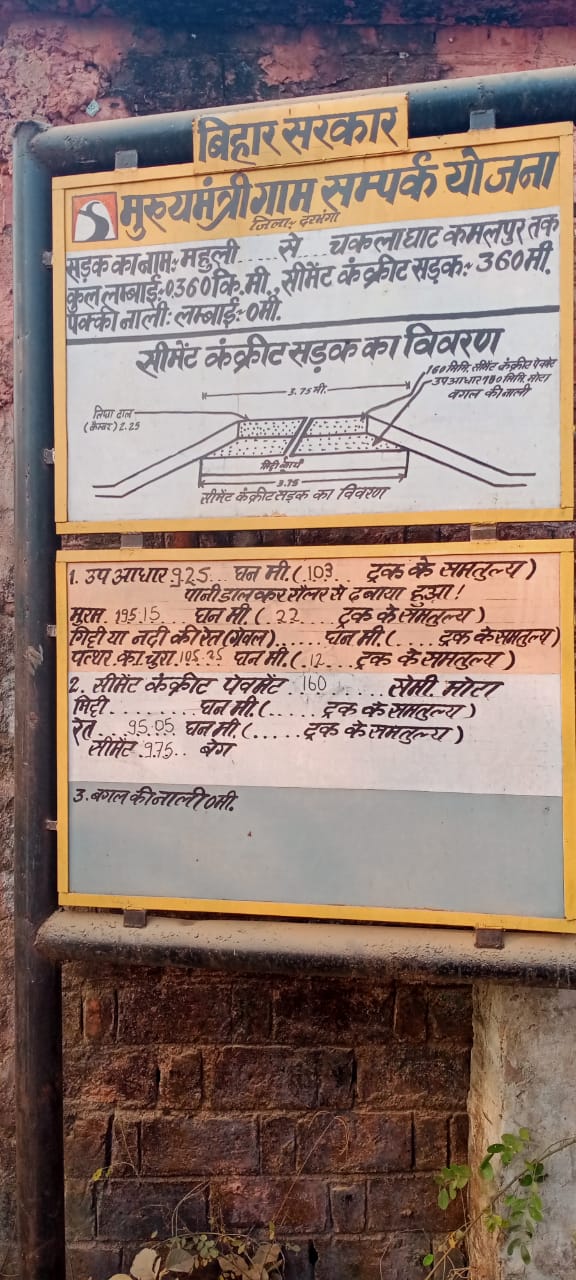 बिहार सरकार
मुख्यमंत्री ग्राम सम्पर्क योजना
जिला:- दरभंगा
सड़क का नाम:- महुली ..... से ..... चकलाघाट कमलपुर तक
कुल लम्बाई:- 0.360 कि.मी., सीमेंट कंक्रीट सड़क:- 360 मी.
पक्की नाली: लम्बाई:- 0 मी.
सीमेंट कंक्रीट सड़क का विवरण
160 मिमि. सीमेंट कंक्रीट पेवमेंट
उप आधार 100 मिमि. मोटा
बगल की नाली
3.75 मी.
तिरछा ढाल
(केम्बर) 2.25
मिट्टी कार्य
3.75
सीमेंट कंक्रीट सड़क का विवरण
1. उप आधार 925 ... घन मी. (103 ... ट्रक के समतुल्य)
पानी डालकर रोलर से दबाया हुआ!
मुरम 195.15 ... घन मी. (.22.... ट्रक के समतुल्य)
गिट्टी या नदी की रेत (ग्रेवल) ...... घन मी. (.... ट्रक के समतुल्य)
पत्थर का चुरा 105.35 घन मी. (.12... ट्रक के समतुल्य)
2. सीमेंट कंक्रीट पेवमेंट .160...... सेमी. मोटा
गिट्टी ......... घन मी. (..... ट्रक के समतुल्य)
रेत ... 95.05 घन मी. (..... ट्रक के समतुल्य)
सीमेंट 975.. बेग
3. बगल की नाली 0 मी.